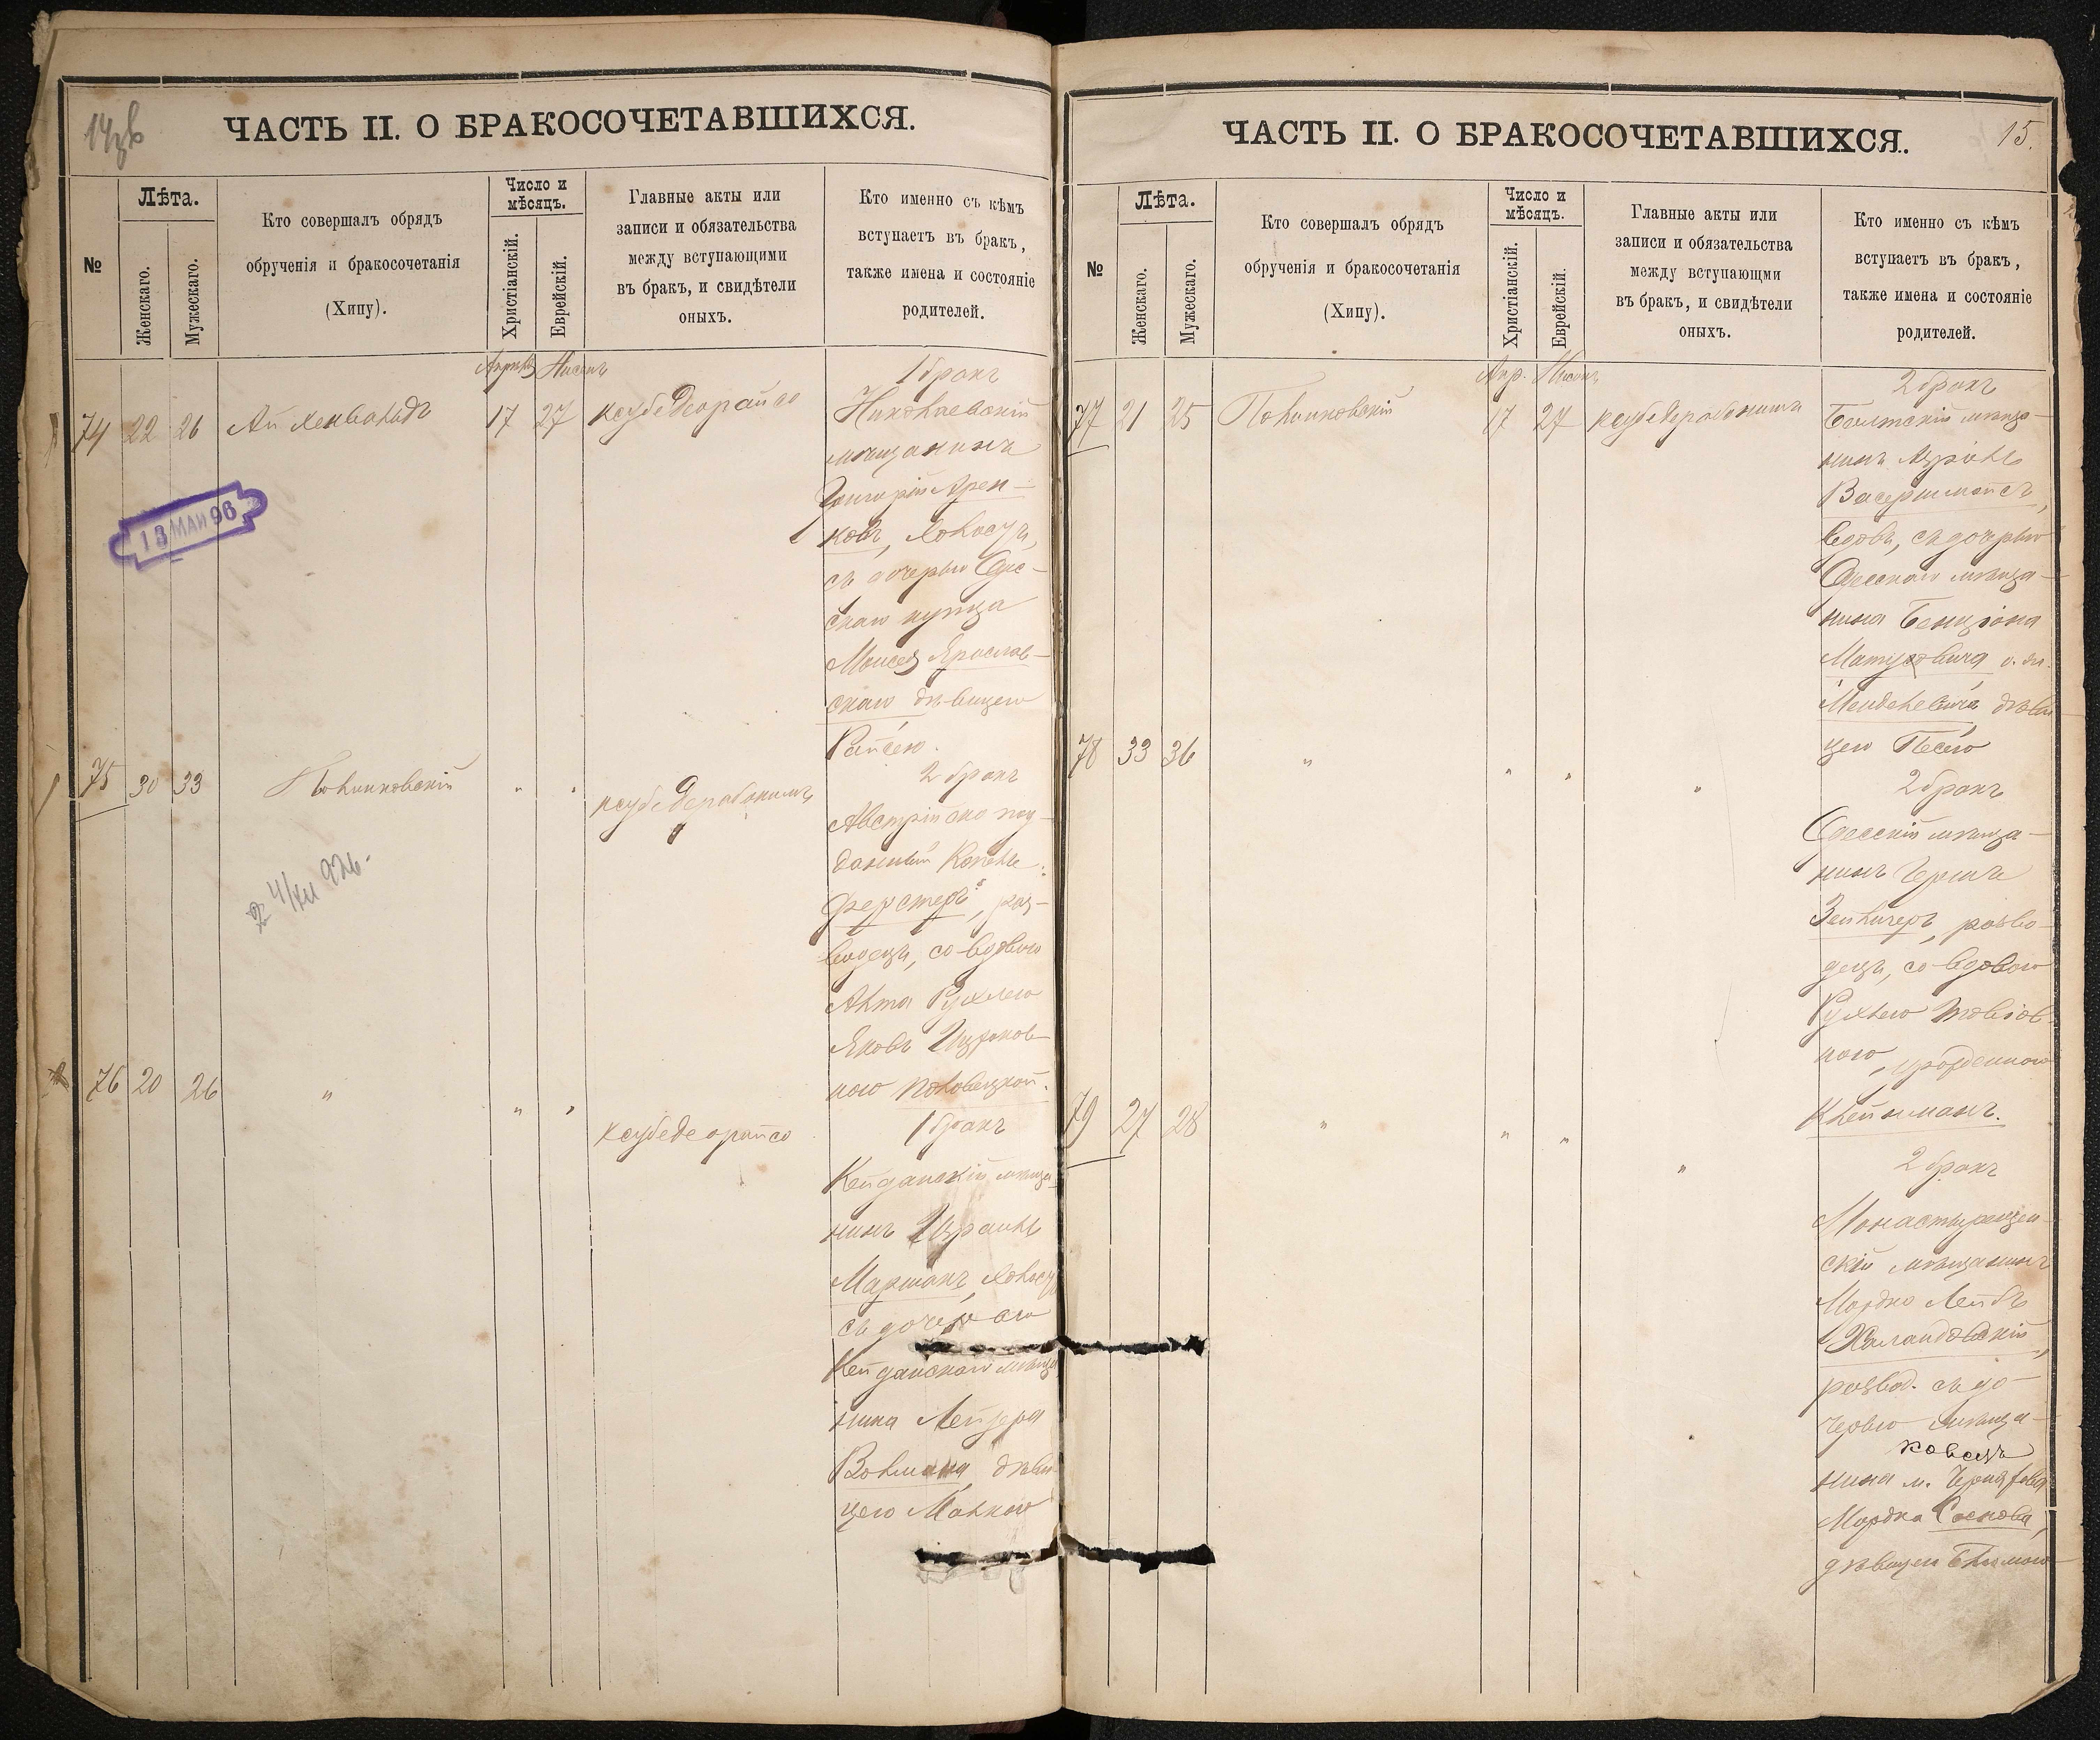 14
ЧАСТЬ II. О БРАКОСОЧЕТАВШИХСЯ.
№
Лѣта.
Женскаго.
Мужескаго.
Кто совершалъ обрядъ
обрученія и бракосочетанія
(Хипу).
Число и
мѣсяцъ.
Христіанскій.
Еврейскій.
Главные акты или
записи и обязательства
между вступающими
въ бракъ, и свидѣтели
оныхъ.
Кто именно съ кѣмъ
вступаетъ въ бракъ,
также имена и состояніе
родителей.
Апрѣль Нисонъ
74 22 26 17 27 ксубедеорайсо
1 бракъ
Николаевскій
мѣщанинъ
Григорій
холостъ,
съ дочерью Одес-
скаго купца
Моисея Ярослав-
скаго дѣвицею
Райсею.
18 МАЙ 96
75 30 33 Полинковскій " " ксубедерабонимъ
2 бракъ
Австрійско под-
данный Копель
Ферстеръ, раз-
водецъ, со вдовою
Рухлею
Ицхоков-
ною Половецкой.
76 20 26 " " " ксубедеорайсо
1 бракъ
Кейданскій мѣща-
нинъ Израиль
Маршакъ, холостъ
съ дочерью
Кейданскаго мѣща
нина Лейзера
Вольмана дѣви-
цею Малкою
ЧАСТЬ II. О БРАКОСОЧЕТАВШИХСЯ.
15.
№
Лѣта.
Женскаго.
Мужескаго.
Кто совершалъ обрядъ
обрученія и бракосочетанія
(Хипу).
Число и
мѣсяцъ.
Христіанскій.
Еврейскій.
Главные акты или
записи и обязательства
между вступающми
въ бракъ, и свидѣтели
оныхъ.
Кто именно съ кѣмъ
вступаетъ въ бракъ,
также имена и состояніе
родителей.
Апр. Нисонъ
77 21 25 Полинковскій 17 27 ксубедерабонимъ
2 бракъ
Балтскій мѣща-
нинъ
Васерманъ,
вдовъ, съ дочерью
Одесскаго мѣща-
нина Бенціона
Менделевича дѣви
цею Песею
78 33 36 " " " "
2 бракъ
Одесскій мѣща-
нинъ Гершъ
Зейлигеръ, разво-
децъ, со вдовою
Рухлею
ною, урожденною
Клейнманъ.
79 27 28 " " " "
2 бракъ
Монастырищен-
скій мѣщанинъ
Мордко Лейбъ
развод. съ до-
черью мѣща-
нина м.
Мордка Соснова,
дѣвицею Блюмою